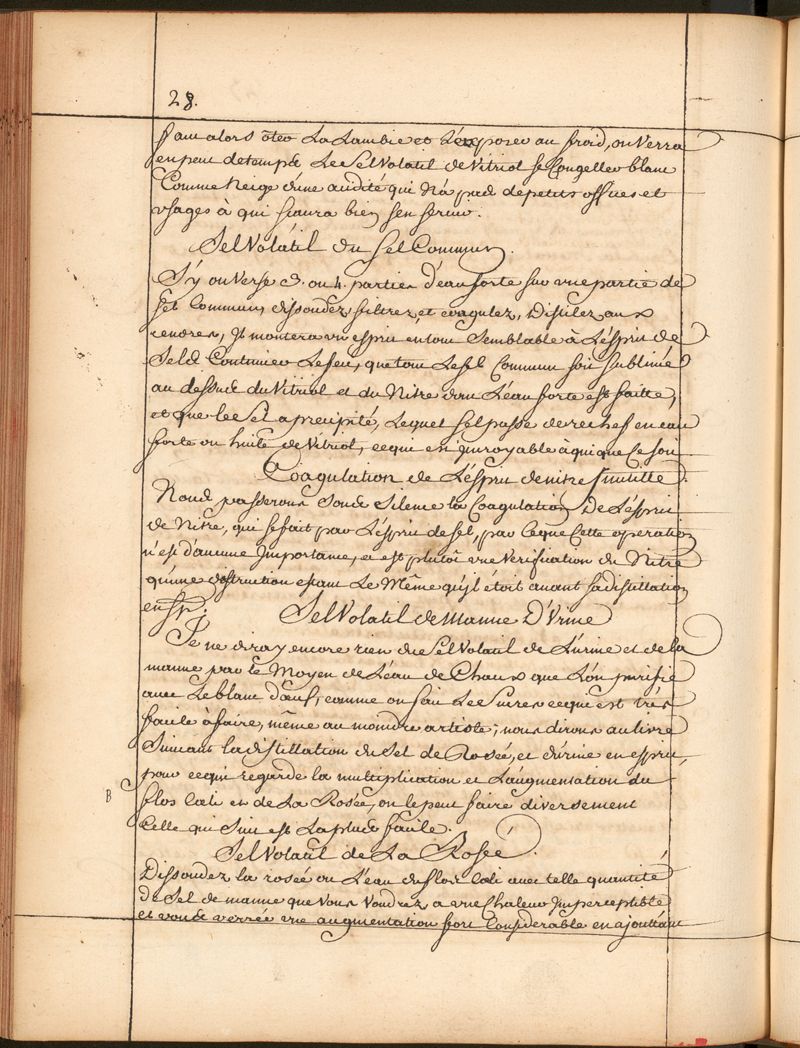 28.
faut alors ôter La Lambic et L'exposer au froid, on Verra
en peu de temps Le Sel Volatil de Vitriol se Congeller blanc
Comme Neige d'une acidité qui N'a pas de petits offices et
usages à qui sçaura bien s'en servir.
Sel Volátil du Sel Commun.
S'y on Verse 3. ou 4. parties d'eau forte sur une partie de
Sel Commun, dissoudez, filtrez, et coagulez, Distilez aux
cendres, Jl montera un esprit en tout Semblable à L'ésprit de
Sel Continuer Le feu, que tout Le Sel Commun soit Sublimé
au dessus du Vitriol et du Nitre dont L'eau forte est faitte,
et que le Sel a precipité, Lequel Sel passe derechef en eau
forte ou huile de Vitriol, ce qui est incroyable à qui que Ce soit
Coagulation de L'ésprit de nitre Jnutille
Nous passerons Sous Silence la Coagulation De L'ésprit
de Nitre, qui se fait par L'ésprit de Sel, par ce que Cette operation
n'est d'aucune Jmportance, et est plutôt une Verification du Nitre
qu'une destruction estant Le Même qu'jl étoit avant sa distillation
en
Sel Volatil de Manne D'Urine
Je ne diray encore rien du Sel Volatil de L'urine et de la
manne par le Moyen de L'eau de Chaux que L'on purifie
avec Le blanc d'œuf, comme on fait Les Sucres ce qui est très
facile à faire, même au moindre artiste; nous dirons au livre
Suivant la distillation du Sel de Rosée, et d'urine en esprit,
pour ce qui regarde la multiplication et L'augmentation du
B
flos Cœli et de La Rosée, on le peut faire diversement
Celle qui Suit est La plus facile.
Sel Volatil de La Rosée
Dissoudez la rosée ou L'eau du flos Cœli avec telle quantité
De Sel de manne que Vous Voudrez a une Chaleur Jmperceptible
et vous verrée une augmentation fort Considerable en ajouttant